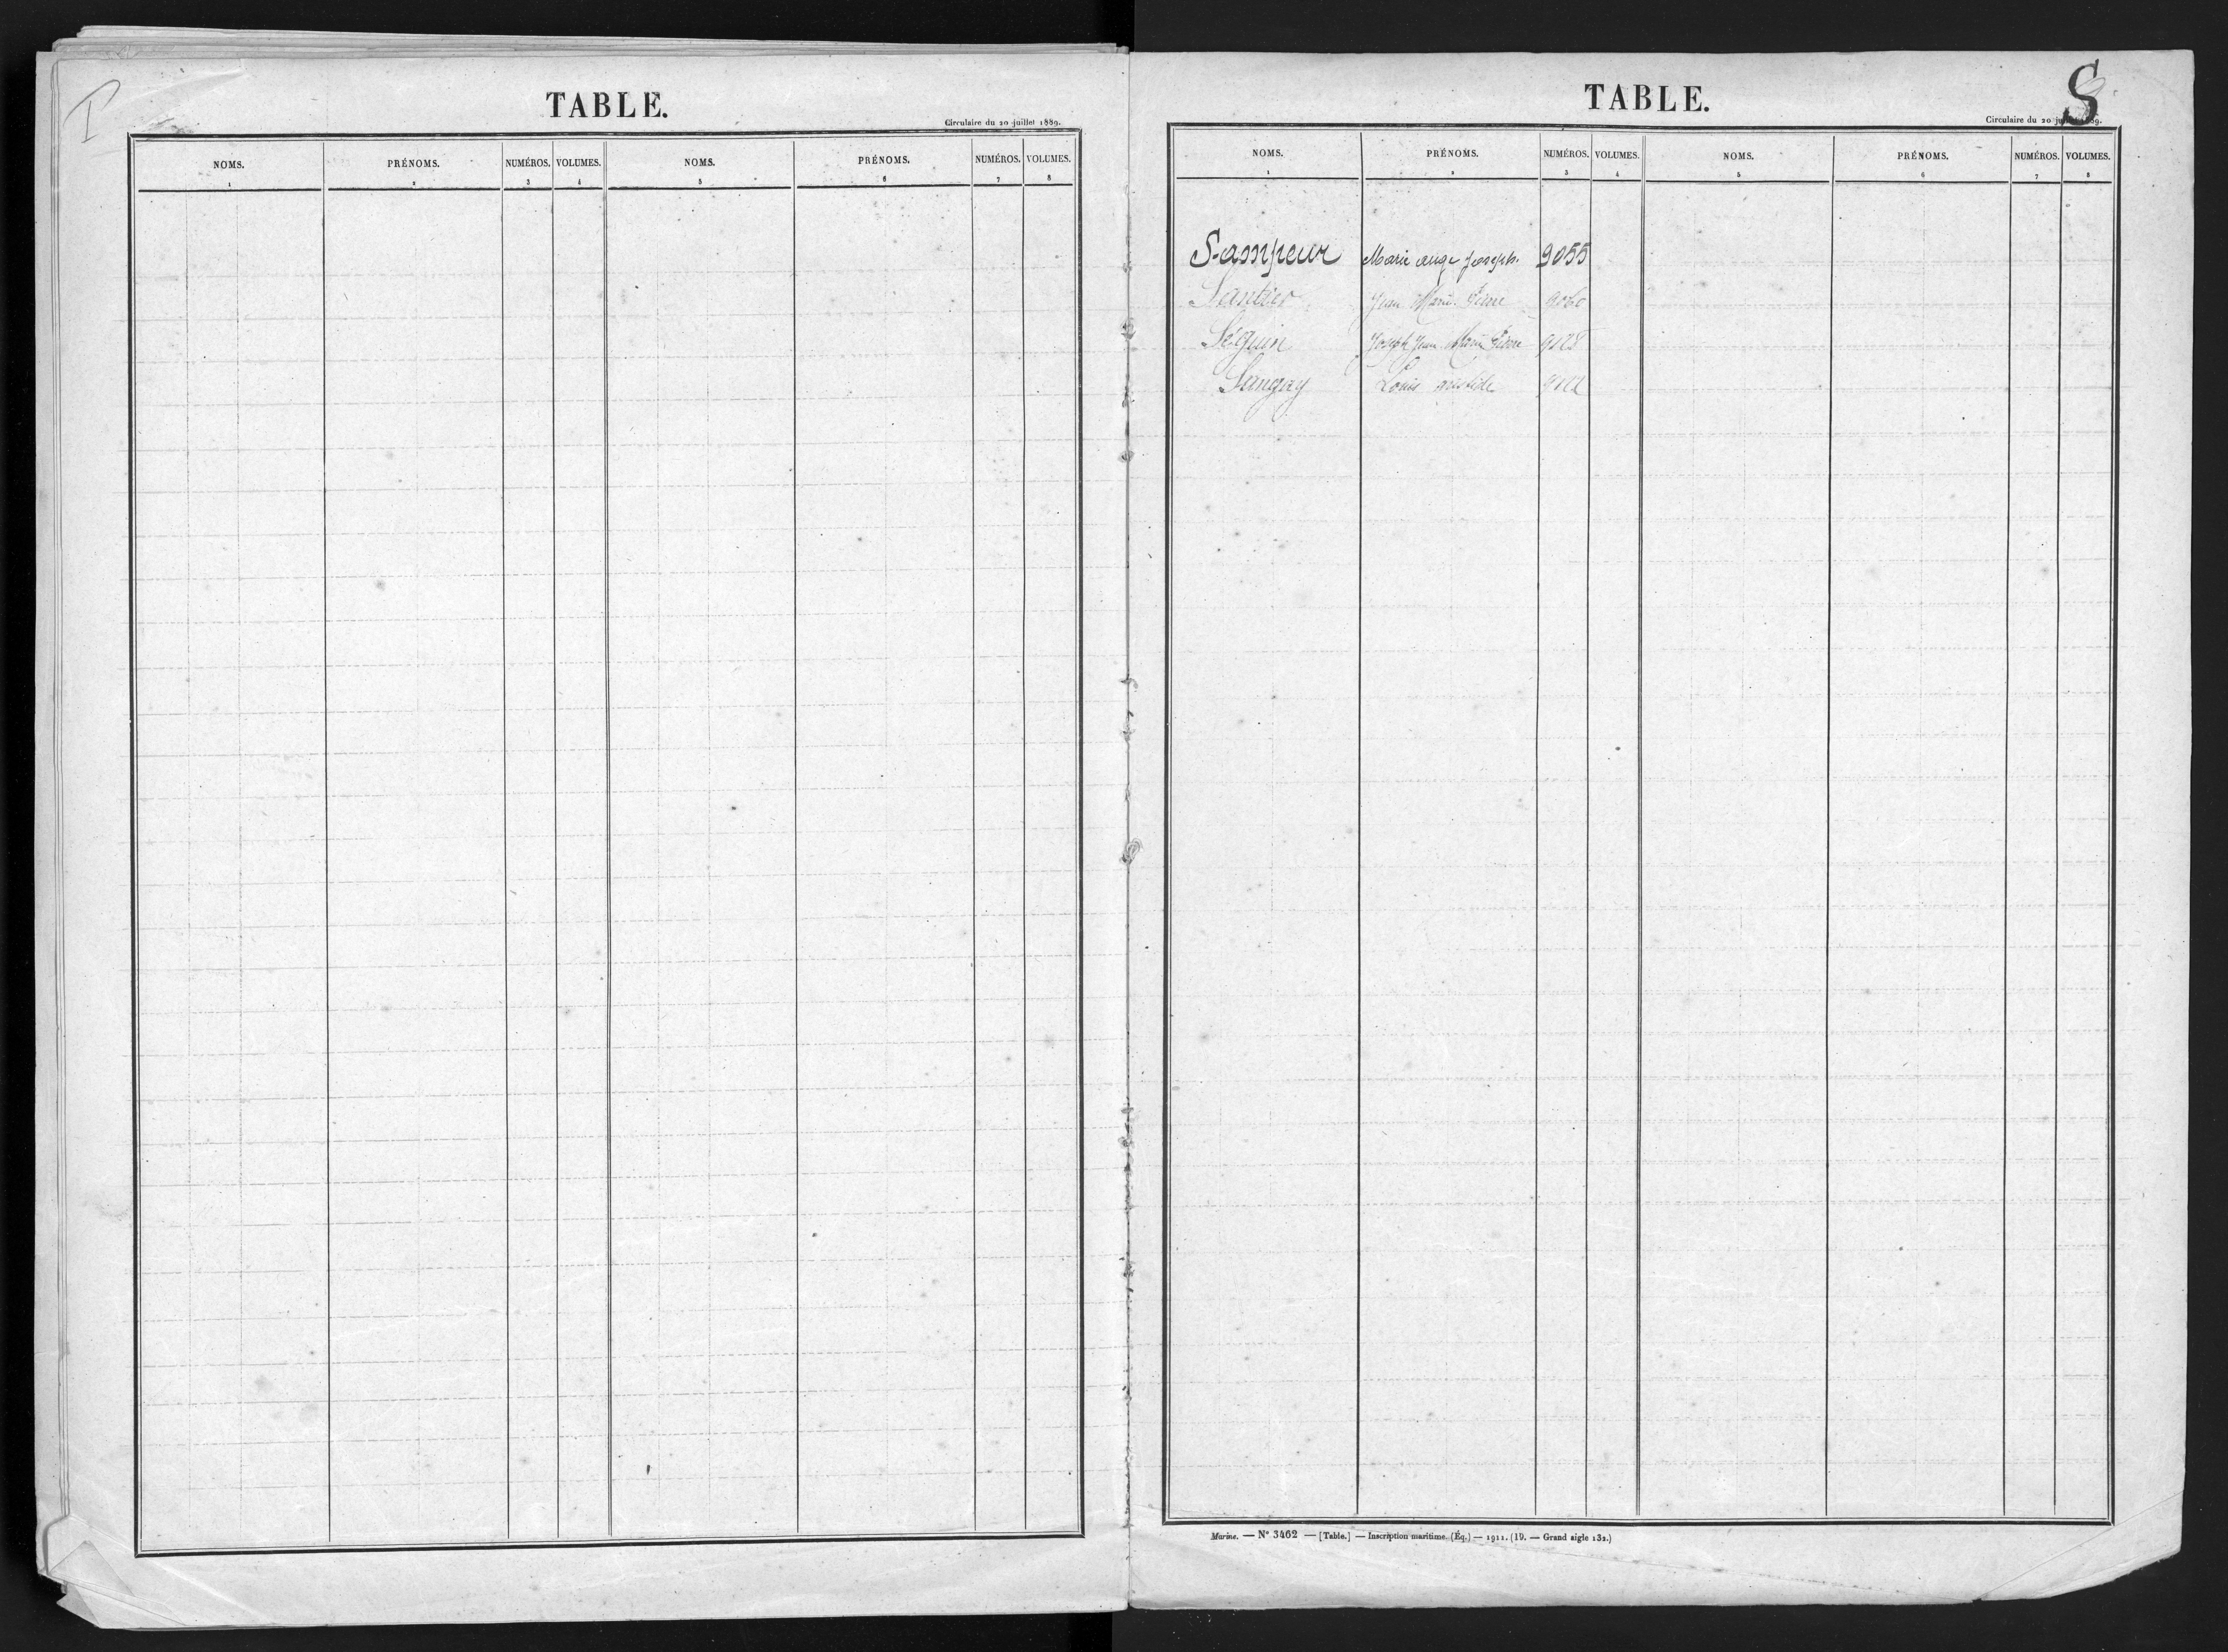 TABLE.
Circulaire du 20 juillet 1889.
NOMS. PRÉNOMS. NUMÉROS. VOLUMES. NOMS. PRÉNOMS. NUMÉROS. VOLUMES.
1 2 3 4 5 6 7 8
S
TABLE.
Circulaire du 20 juillet 1889.
NOMS. PRÉNOMS. NUMÉROS. VOLUMES. NOMS. PRÉNOMS. NUMÉROS. VOLUMES.
1 2 3 4 5 6 7 8
Sampeur Marie ange Joseph. 9055
Santier Jean Marie Pierre 9060
Séguin Joseph Jean Marie Pierre 9128
Louis aristide
Marine. — N° 3462 — [Table.] — Inscription maritime. (Éq.) — 1911. (19. — Grand aigle 132.)